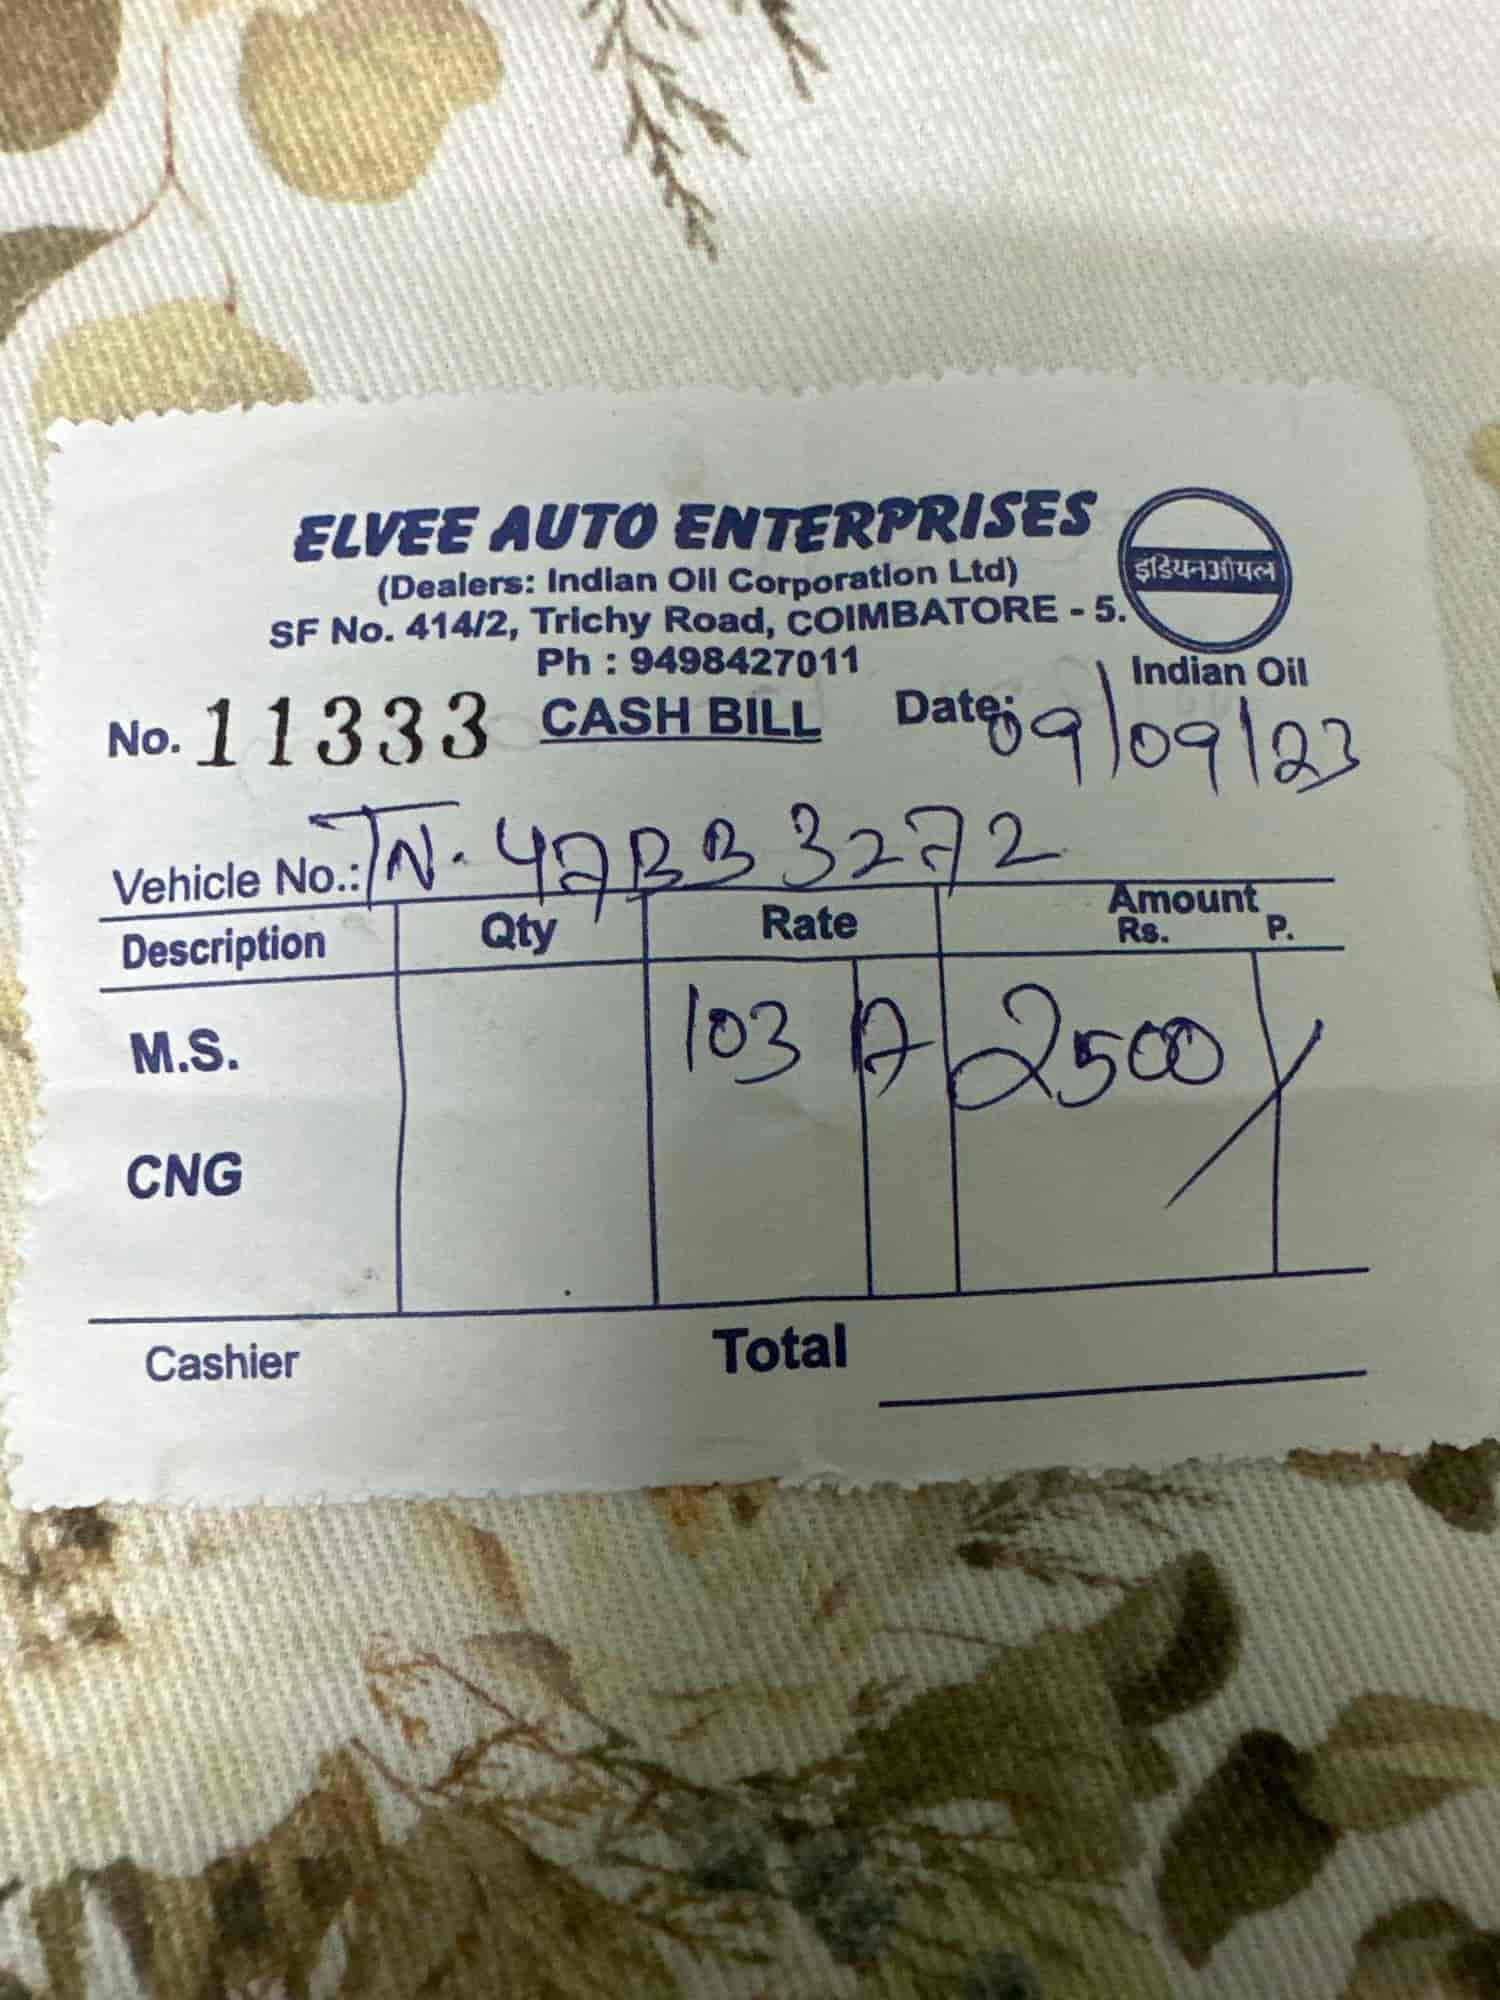 ELVEE AUTO ENTERPRISES
(Dealers: Indian Oil Corporation Ltd)
SF No. 414/2, Trichy Road, COIMBATORE - 5.
Ph : 9498427011
इंडियनऑयल
Indian Oil
No. 11333 CASH BILL Date: 09/09/23
Vehicle No.: TN. 47BB 3272
Description Qty Rate Amount
Rs. P.
M.S. 103 2500
CNG
Cashier Total